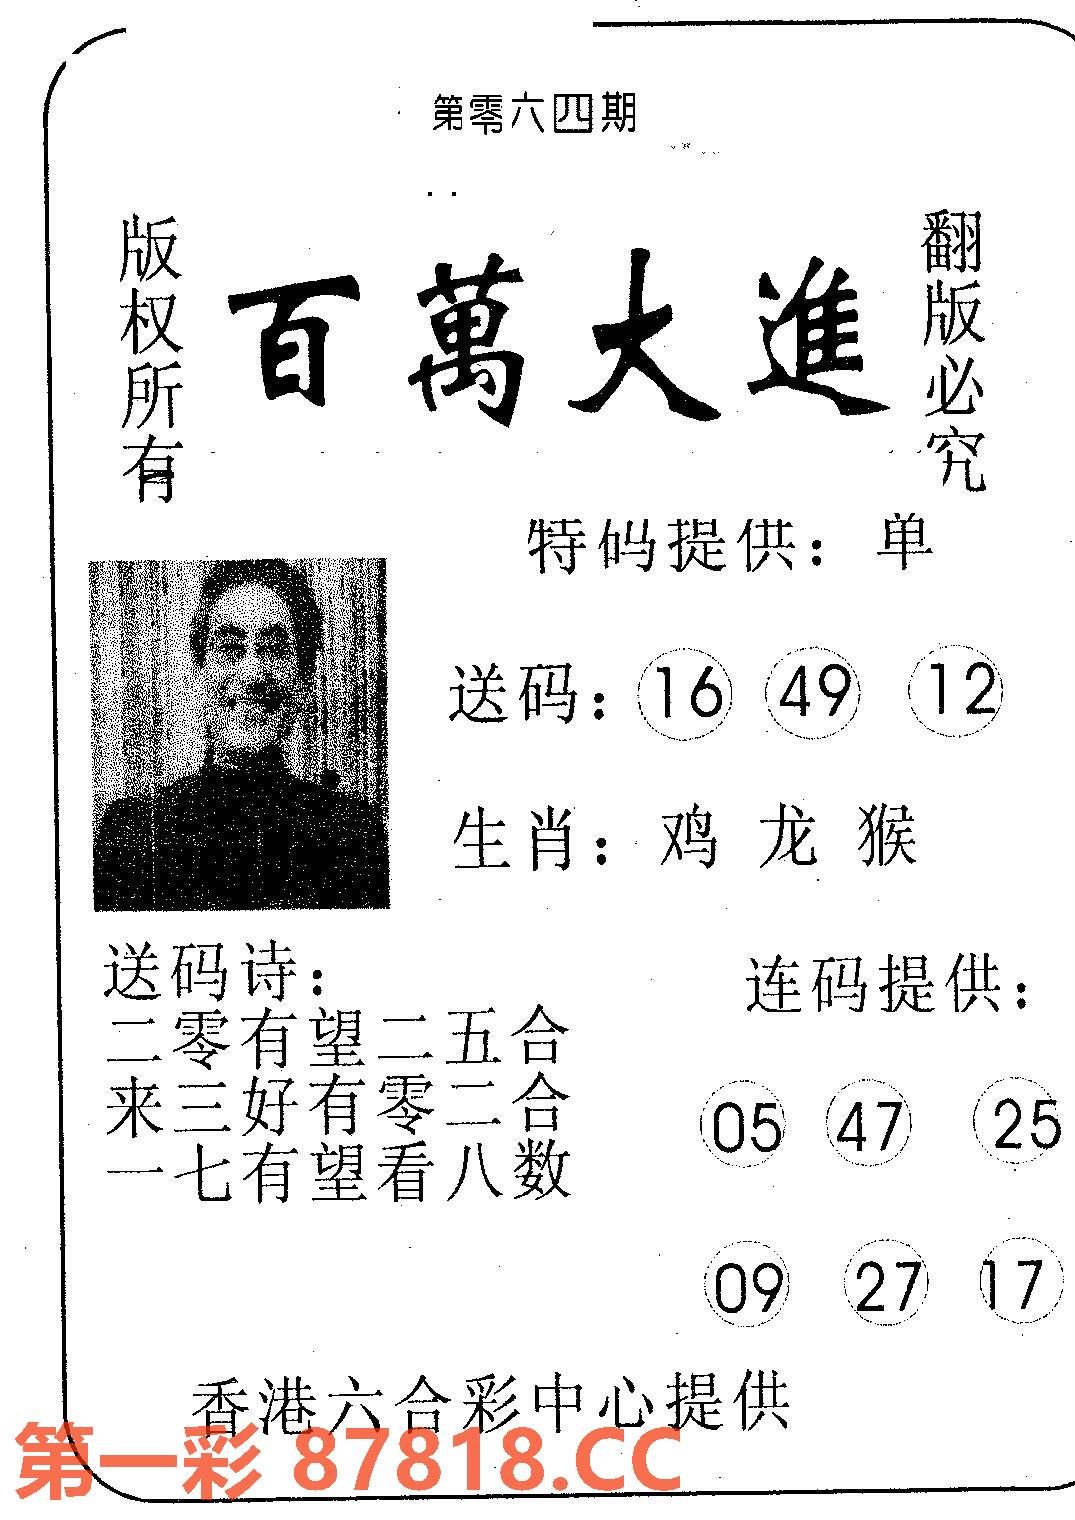 第零六四期
版权所有
百萬大進
翻版必究
特码提供：单
送码：16 49 12
生肖：鸡 龙 猴
送码诗：
二零有望二五合
来三好有零二合
一七有望看八数
连码提供：
05 47 25
09 27 17
香港六合彩中心提供
第一彩 87818.CC